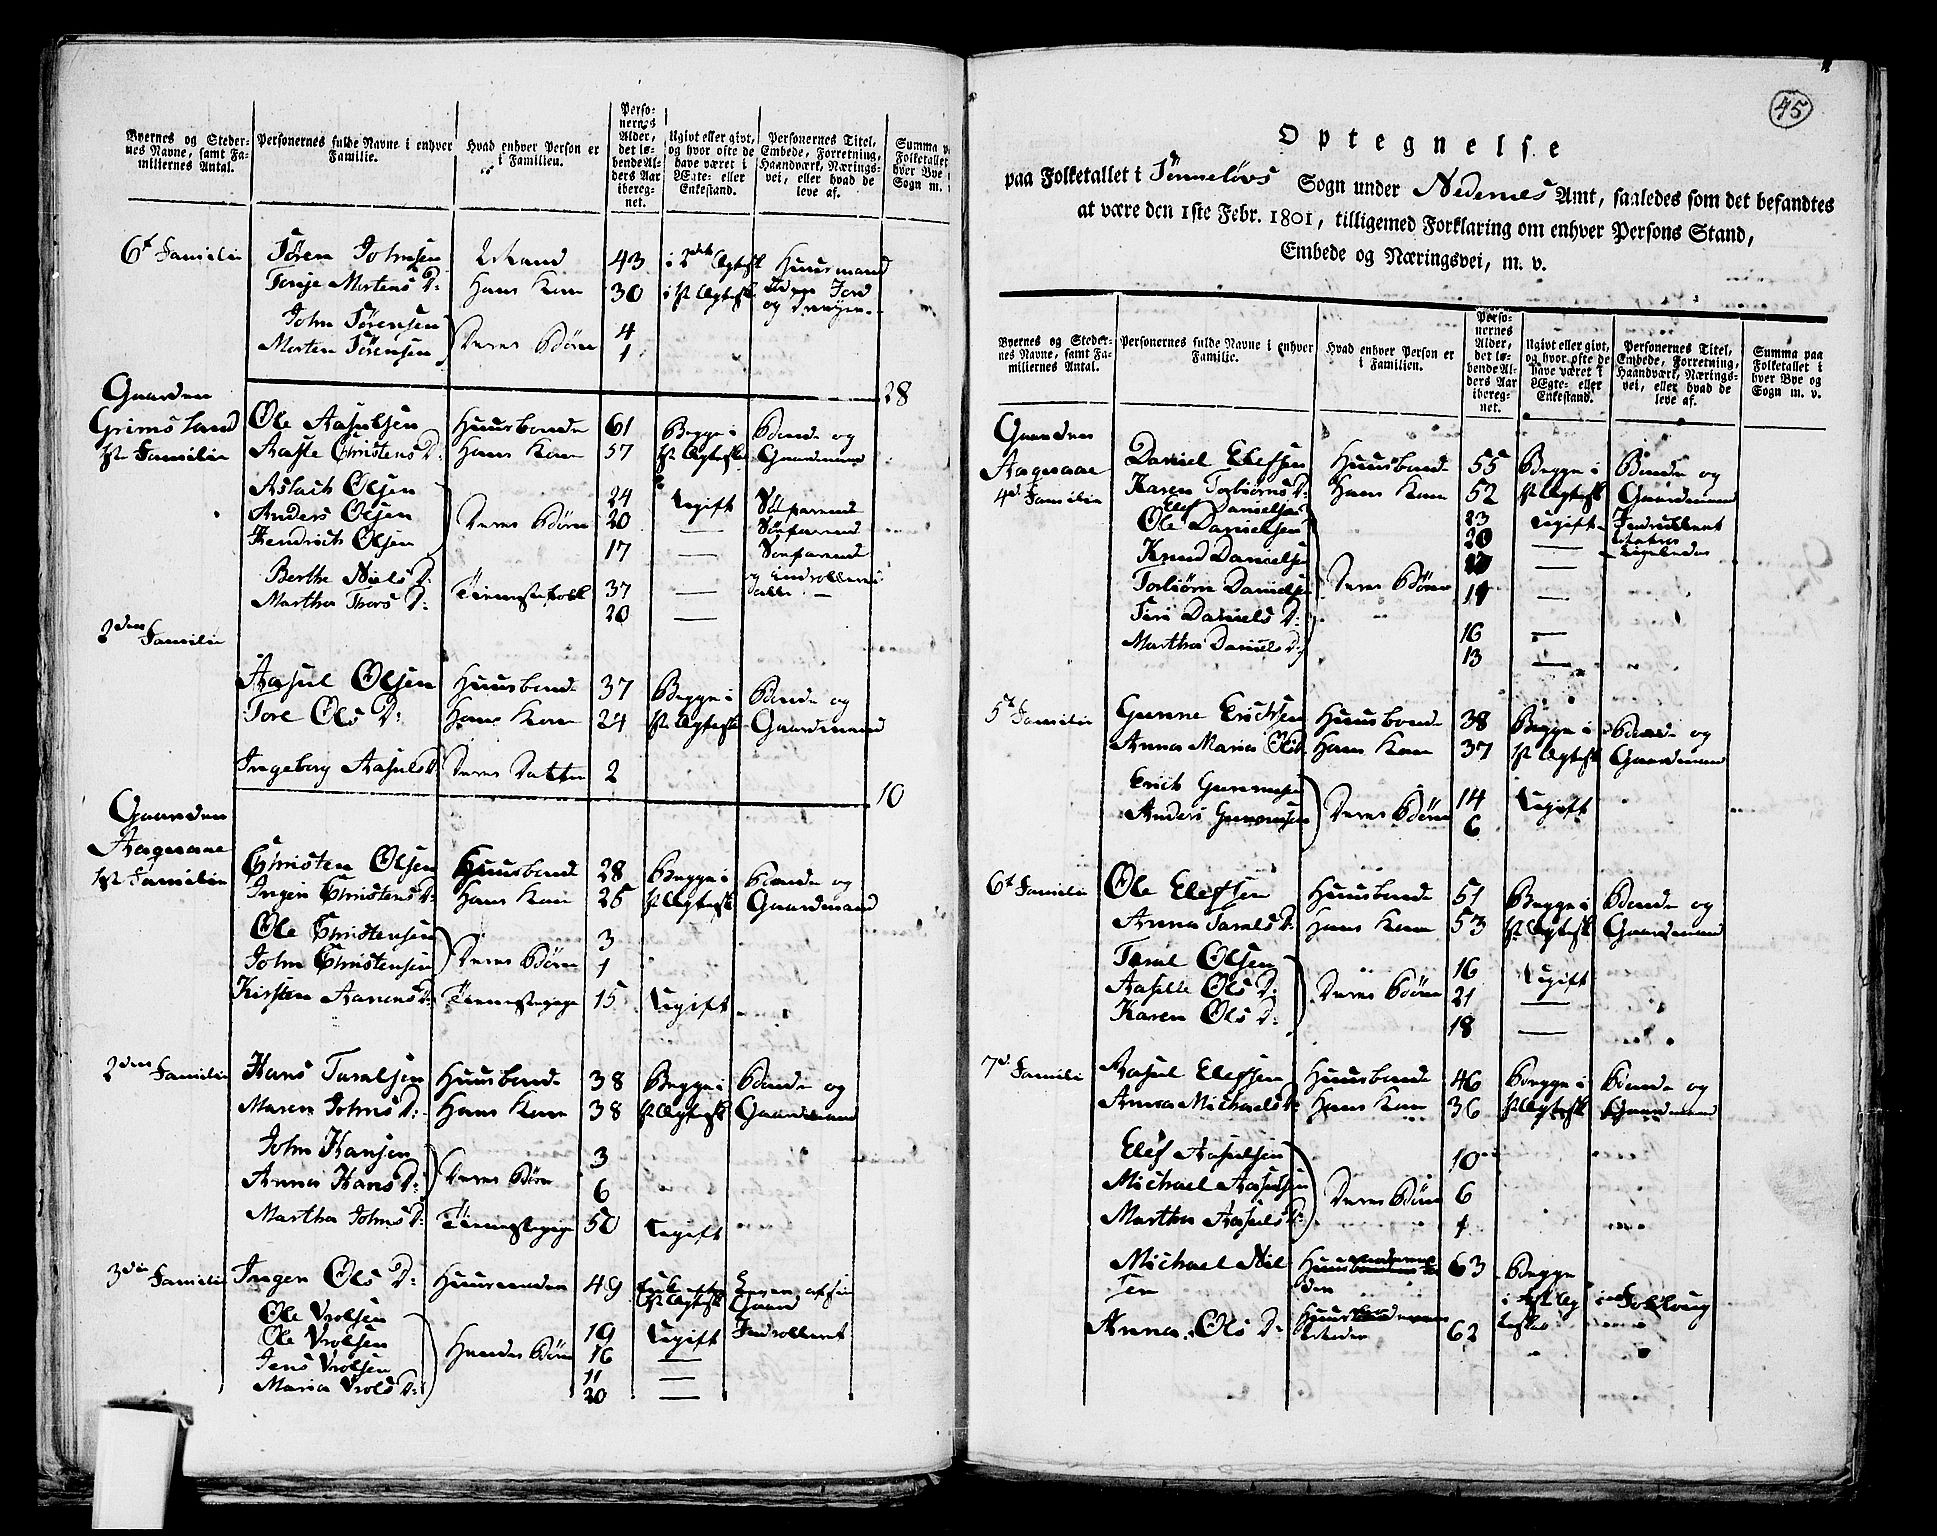 Byernes og Stedernes Navne, samt Familiernes Antal.
Personernes fulde Navne i enhver Familie.
Hvad enhver Person er i Familien.
Personernes Alder, det løbende Alders Aar iberegnet.
Ugivt eller givt, og hvor ofte de have været i Ægte- eller Enkestand.
Personernes Titel, Embede, Forretning, Haandværk, Næringsvei, eller hvad de leve af.
Summa Folketallet hver Bye Sogn m.
6t Familie Søren Johnsen Mand 43 i 2det Ægtesk Huusmand
Terje Mortens D: Hans Kone 30 i 1st Ægtesk uden Jord
John Sørensen Deres Børn 4 og
Morten Sørensen 1
28
Gaarden
Grimsland Ole Aasulsen Huusbonde 61 Begge i Bonde og
1st Familie Aasle Christens D: Hans Kone 57 1st Ægtesk Gaardmand
Aslach Olsen 24 Ugift Søefarende
Anders Olsen Deres Børn 20 — Søefarende
Hendrich Olsen 17 — Søefarende
Berthe Niels D: Tienestefolk 37 — og indrolleret
Martha Thors D: 20 —
2den Familie
Aasul Olsen Huusbonde 37 Begge i Bonde og
Tore Ols D: Hans Kone 24 1st Ægtesk Gaardmand
Ingeborg Aasuls D Deres Datter 2
10
Gaarden
Aagnaae
1st Familie Christen Olsen Huusbonde 28 Begge i Bonde og
Inger Christens D: Hans Kone 26 1st Ægtesk Gaardmand
Ole Christensen 3
John Christensen Deres Børn 1
Kirsten Aanens D: Tienestepige 15 Ugift
2den Familie Hans Taralsen Huusbonde 38 Begge i Bonde og
Maren Johns D: Hans Kone 38 1st Ægtesk Gaardmand
John Hansen 3
Anna Hans D: Deres Børn 6
Martha Johns D: Tienestepige 50 Ugift
3die Familie Inger Ols D: Huusmoder 49 Enke efter Lever af sin
1st Ægtesk Gaard
Ole Vrolsen 19 Ugift Indrolleret
Ole Vrolsen Hendes Børn 16 —
Jens Vrolsen 11
Maria Vrols D: 20 —
45
Optegnelse
paa Folketallet i Tønneløvs Sogn under Nedenes Amt, saaledes som det befandtes
at være den 1ste Febr. 1801, tilligemed Forklaring om enhver Persons Stand,
Embede og Næringsvei, m. v.
Byernes og Stedernes Navne, samt Familiernes Antal.
Personernes fulde Navne i enhver Familie.
Hvad enhver Person er i Familien.
Personernes Alder, det løbende Alders Aar iberegnet.
Ugivt eller givt, og hvor ofte de have været i Ægte- eller Enkestand.
Personernes Titel, Embede, Forretning, Haandværk, Næringsvei, eller hvad de leve af.
Summa paa Folketallet i hver Bye og Sogn m. v.
Gaarden
Aagnaae Daniel Elefsen Huusbonde 55 Begge i Bonde og
4d Familie Karen Torbiørns D: Hans Kone 52 1st Ægtesk Gaardmand
Elef Danielsen 23 Ugift Indrulleret
Ole Danielsen 20
Knud Danielsen —
Torbiørn Danielsen Deres Børn —
Siri Daniels D: 16 —
Martha Daniels D: 13 —
5t Familie Gunne Erichsen Huusbonde 38 Begge i Bonde og
Anna Maria Ols D Hans Kone 37 1st Ægtesk Gaardmand
Erich Gunnesen 14 Ugift
Anders Gunnesen Deres Børn 6
6t Familie Ole Elefsen Huusbonde 51 Begge i Bonde og
Anna Tarals D: Hans Kone 53 1st Ægtesk Gaardmand
Taral Olsen 16 Ugift
Aasille Ols D: Deres Børn 21 —
Karen Ols D: 18 —
7d Familie Aasul Elefsen Huusbonde 46 Begge i Bonde og
Anna Michaels D: Hans Kone 36 1st Ægtesk Gaardmand
Elef Aasulsen 10
Michael Aasulsen Deres Børn 6
Martha Aasuls D: 1
Michael Nilsen 63 Begge
i 1st Æg Follaug
Anna Ols D: 62 teskab